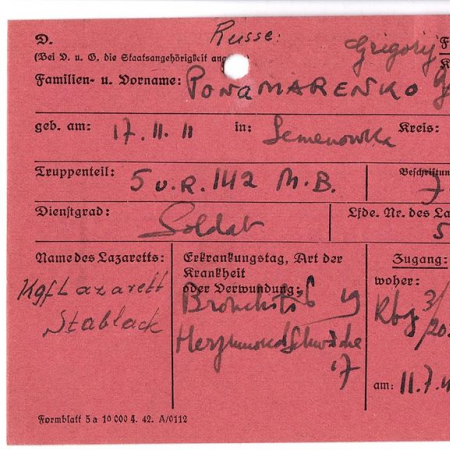 D. Russe:
(Bei D. u. G. die Staatsangehörigkeit ang
Grigorij
Familien- u. Vorname: PONAMARENKO
geb. am: 17. 11. 11 in: Semenowka Kreis:
Truppenteil: 5 u. R. 142 M.B. Beschriftun
Dienstgrad: Soldat Lfde. Nr. des La
5
Name des Lazaretts:
Kgf Lazarett
Stablack
Erkrankungstag, Art der
Krankheit
oder Verwundung:
Bronchitis
Zugang:
woher:
am: 11.7.4
Formblatt 5a 10 000 4. 42. A/0112